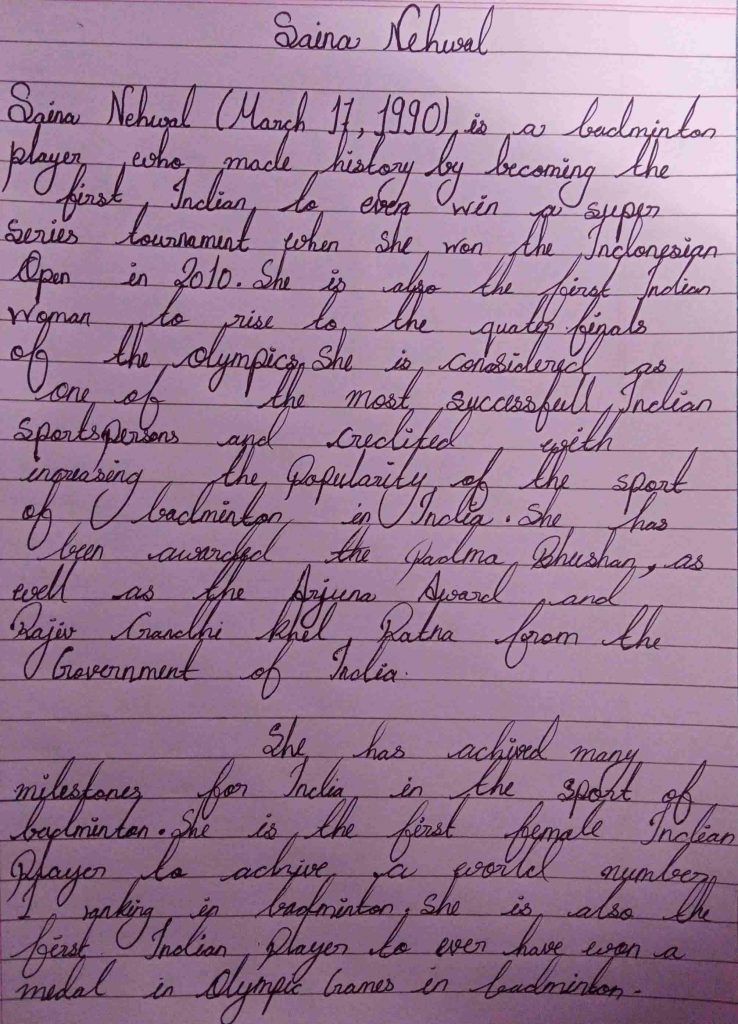 Saina Nehwal
Saina Nehwal (March 17, 1990) is a badminton
player who made history by becoming the
first Indian to even win a super
series tournament when she won the Indonesian
Open in 2010. She is also the first Indian
woman to rise to the quater finals
of the olympics, She is considered as
one of the most successfull Indian
sportspersons and credited with
increasing the Popularity of the sport
of badminton in India. She has
been awarded the Padma Bhushan, as
well as the Arjuna Award and
Rajiv Gandhi khel Ratna from the
Government of India.
She has achived many
milestones for India in the sport of
badminton. She is the first female Indian
Player to achive a world number
1 ranking in badminton. She is also the
first Indian Player to ever have won a
medal in Olympic Games in badminton.